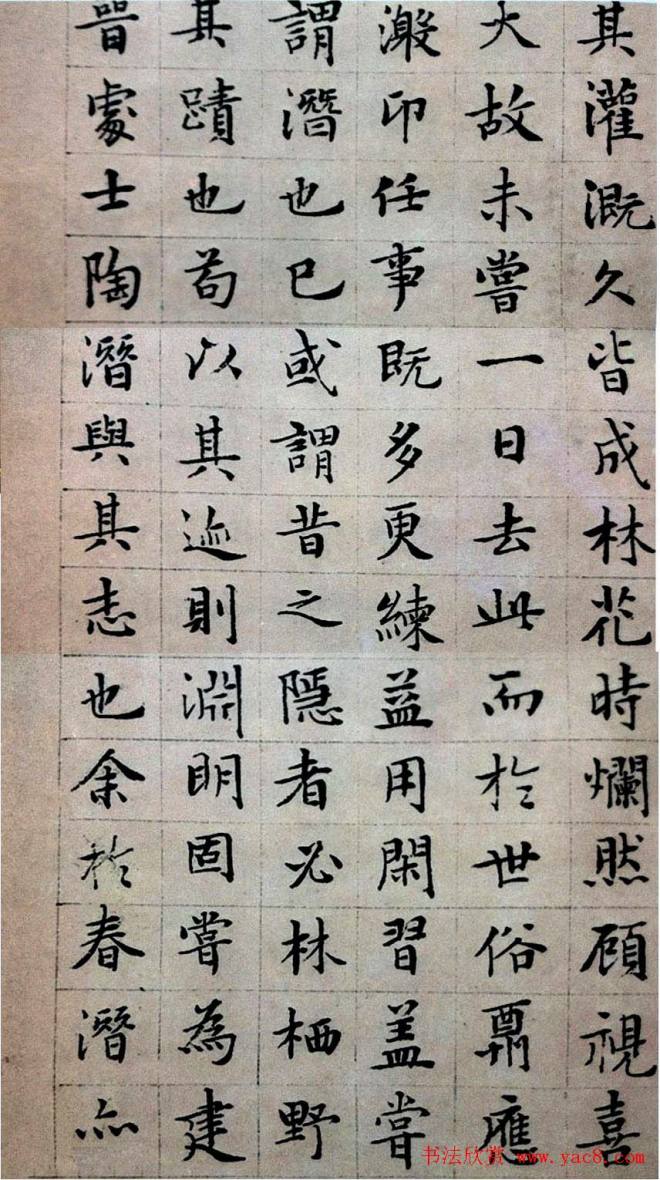 其灌溉久皆成林花時爛然顧視喜
大故未嘗一日去此而於世俗應
激卬任事既多更練益用閑習盖嘗
謂潛也已或謂昔之隱者必林栖野
其蹟也苟以其迹則淵明固嘗為建
晉處士陶潛與其志也余於春潛亦
书法欣赏 www.yac8.com